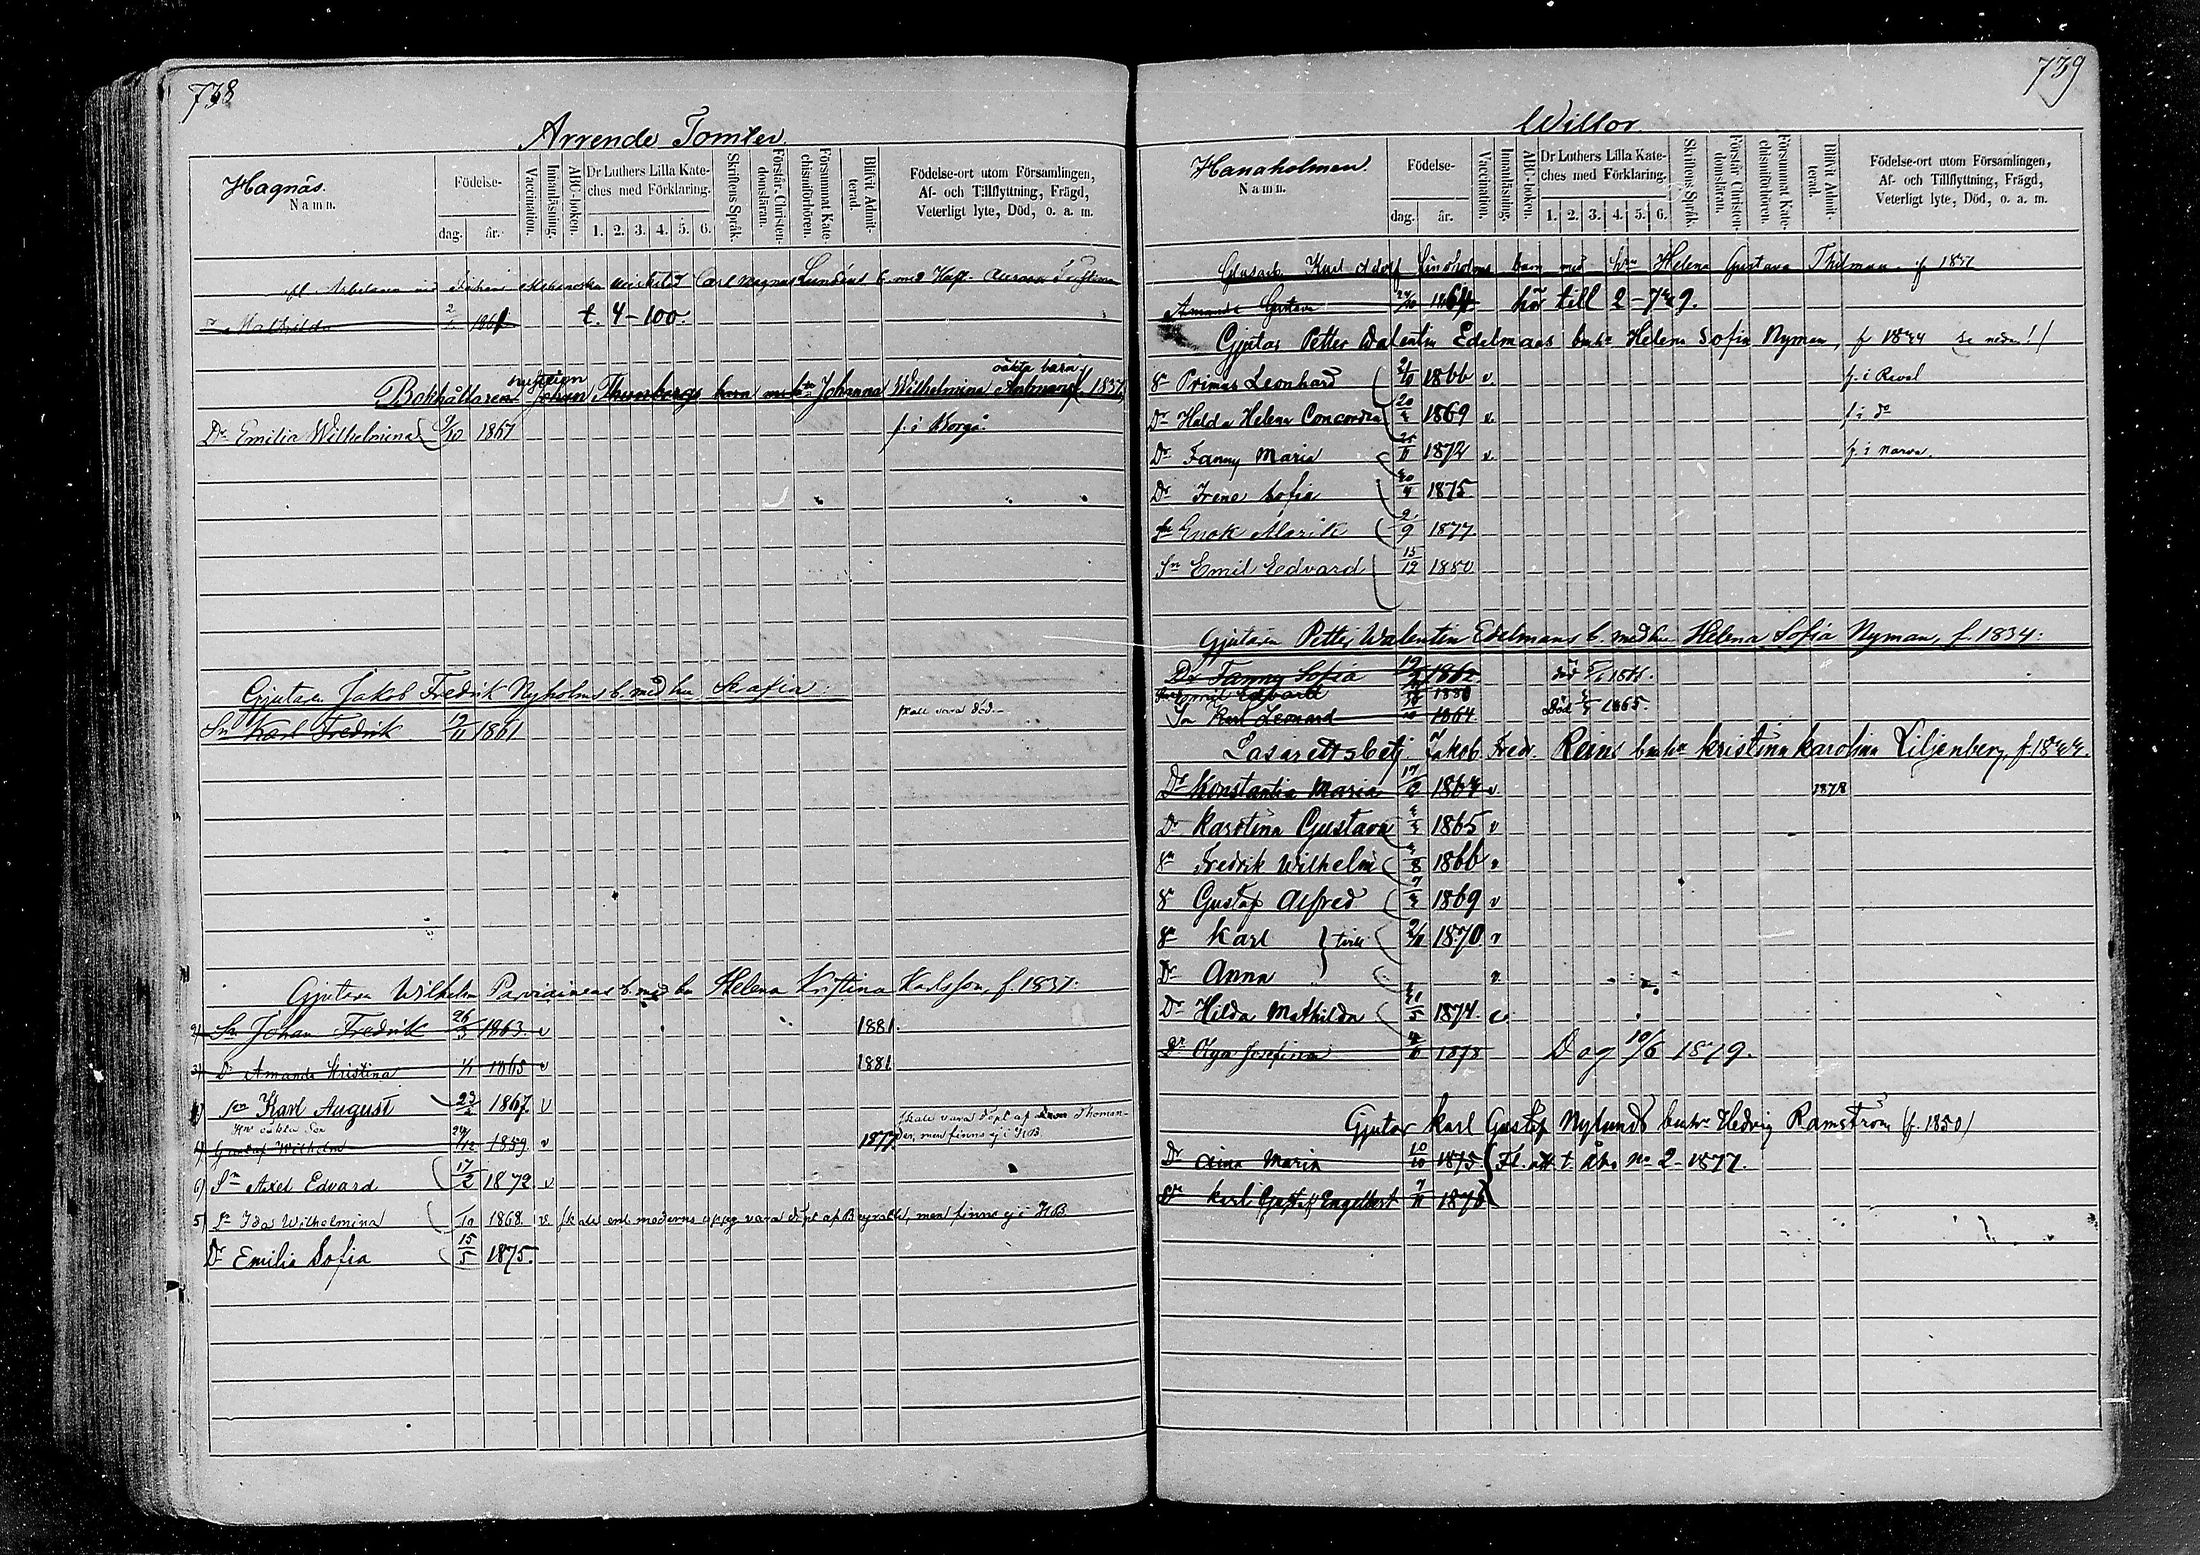 738
Arrende Tomter.
Hagnäs.
Namn.
Födelse-
dag. år.
Vaccination.
Innanläsning.
ABC-boken.
Dr Luthers Lilla Kate-
ches med Förklaring.
1. 2. 3. 4. 5. 6.
Skriftens Språk.
Förstår Christen-
domsläran.
Försummat Kate-
chismiförhören.
Blifvit Admit-
terad.
Födelse-ort utom Församlingen,
Af- och Tillflyttning, Frägd,
Veterligt lyte, Död, o. a. m.
Carl Magnus Lundens b. med
Mathilda 1861 t. 4-100.
oäkta barn
Bokhållaren Johan Thunbergs barn Johanna Wilhelmina 1837
Dr Emilia Wilhelmina 9/10 1867 f. i Borgå.
Gjutaren Jakob Fredrik Nyholms b. med hu
Sn Karl Fredrik 19/11 1861 skall vara död.-
Gjutaren Wilhelm Parviainens b. med hu Helena Kristina Karlsson, f. 1837.
2) Sn Johan Fredrik 26/3 1863. v 1881.
3) Dr Amanda Kristina 1865 v 1881
4) Son Karl August 23/2 1867. v
Hns oäkta Son
skall vara döpt af Thoman-
der, men finns ej i KB
1) Gustaf Wilhelm 24/12 1859 v 1877
6) Sn Axel Edvard 17/2 1872. v
5) Dr Ida Wilhelmina /10 1868. v. skall enl. moderns uppg vara döpt af men finns ej i KB
Dr Emilia Sofia 15/5 1875.
739
Willor.
Hanaholmen.
Namn.
Födelse-
dag. år.
Vaccination.
Innanläsning.
ABC-boken.
Dr Luthers Lilla Kate-
ches med Förklaring.
1. 2. 3. 4. 5. 6.
Skriftens Språk.
Förstår Christen-
domsläran.
Försummat Kate-
chismiförhören.
Blifvit Admit-
terad.
Födelse-ort utom Församlingen,
Af- och Tillflyttning, Frägd,
Veterligt lyte, Död, o. a. m.
Karl Adolf Lindholms barn med hu Helena Gustava Thilman f 1851
Amanda Gustava 1864 hör till 2-729.
Gjutar Petter Walentin Edelmans b m hu Helena Sofia Nyman, f 1844 se nedan!/
Sn Primus Leonhard 1866 v. f. i Reval
Dr Hulda Helena Concordia 20/ 1869 v. f. i do
Dr Fanny Maria 25/11 1872 v. f. i Narva.
Dr Irene Sofia 20/4 1875
Sn Enok Alarik 2/9 1877
Sn Emil Edvard 15/12 1880
Gjutaren Petter Walentin Edelmans b. med hu Helena Sofia Nyman, f. 1834.
Dr Fanny Sofia 1862 död 1866.
Emil Edvard 1880
Son Karl Leonard 1864 Död 1865.
Lasarettsbetj. Jakob Fredr. Reins b m hu Kristina Karolina Liljenberg, f. 1844.
Dr Konstantia Maria 17/ 1864 v. 1878
Dr Karolina Gustava 1865 v
Sn Fredrik Wilhelm /8 1866 v
S Gustaf Alfred 1869 v
Sn Karl } tvill 2/11 1870 v
Dr Anna v.
Dr Hilda Mathilda 1874. v.
Dr Olga Josefina 1878 Dog 10/6 1879.
Gjutar Karl Gustaf Nylunds b m hu Hedvig Ramström (f. 1850)
Dr Aina Maria 10/10 1875 Fl. t. Åbo no 2-1877.
Sn Karl Gustaf Engelbert 7/11 1876